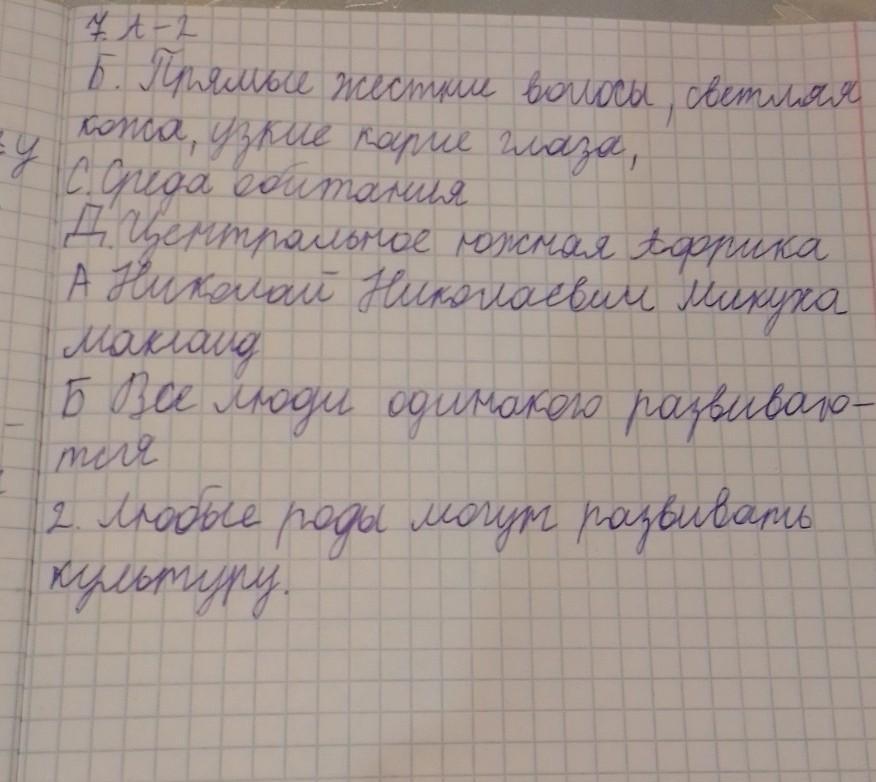 7. А-2
Б. Прямые жесткие волосы, светлая
кожа, узкие карие глаза,
С. Среда обитания
Д. Центральное южная Африка
А Николай Николаевич Микуха
Маклаид
Б Все люди одинакого развиваю-
тся
2. Любые роды могут развивать
культуру.
у